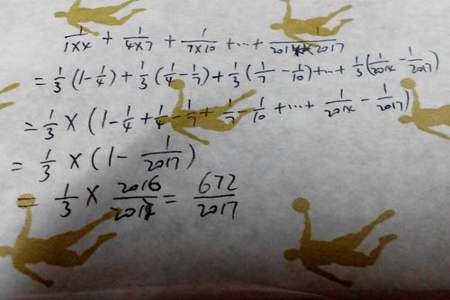 1/(1×4) + 1/(4×7) + 1/(7×10) + ... + 1/(2014×2017)
= 1/3 (1 - 1/4) + 1/3 (1/4 - 1/7) + 1/3 (1/7 - 1/10) + ... + 1/3 (1/2014 - 1/2017)
= 1/3 × (1 - 1/4 + 1/4 - 1/7 + 1/7 - 1/10 + ... + 1/2014 - 1/2017)
= 1/3 × (1 - 1/2017)
= 1/3 × 2016/2017 = 672/2017